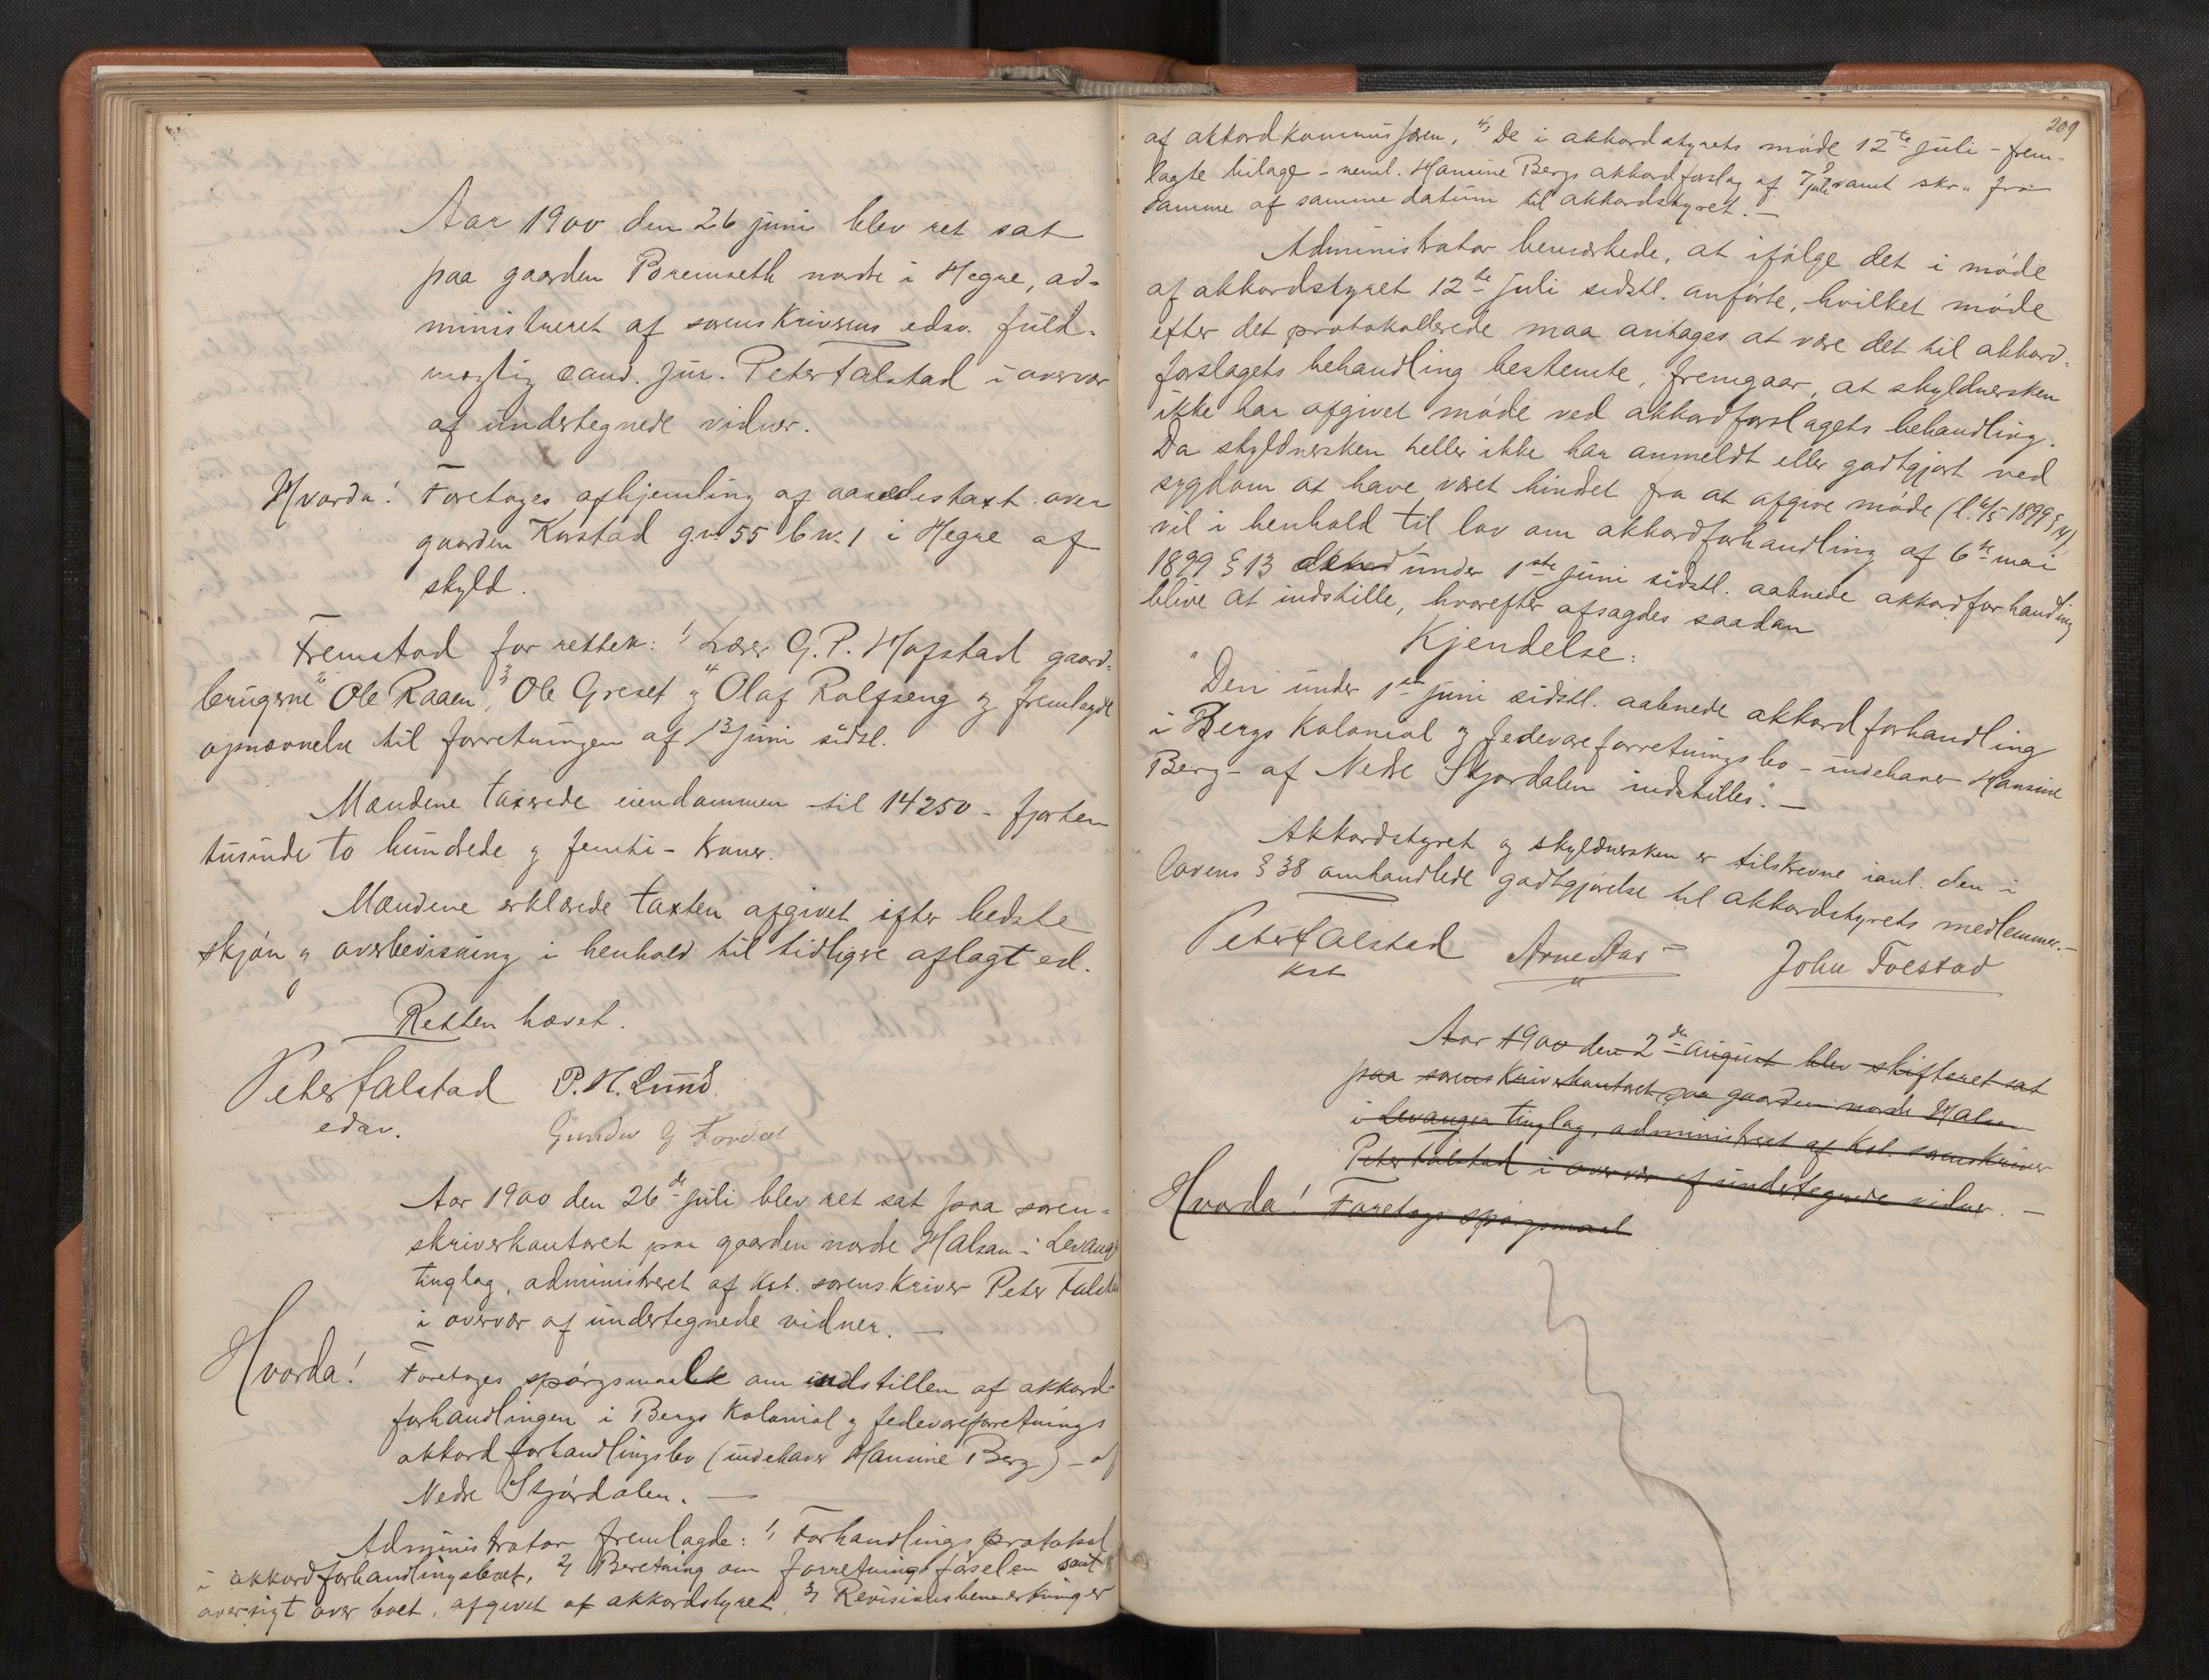 Aar 1900 den 26 juni blev ret sat
paa gaarden Boremseth nordre i Hegre, ad-
ministreret af sorenskriverens edsv. fuld-
mægtig cand. jur. Peter Falstad i overvær
af undertegnede vidner.
Hvorda! Foretoges afhjemling af aasædestaxt over
gaarden Korstad gn. 55 bn. 1 i Hegre af
skyld.
Fremstod for retten: 1) Lærer G. P. Hofstad gaard-
brugerne 2) Ole Raaen, 3) Ole Greset og 4) Olaf Rolfseng og fremlagde
opnævnelse til forretningen af 13 juni sidstl.
Mændene taxerede eiendommen til 14250 - fjorten
tusinde to hundrede og femti - kroner.
Mændene erklærede taxten afgivet efter bedste
skjøn og overbevisning i henhold til tidligere aflagt ed.
Retten hævet.
Peter Falstad P. N. Lund.
edsv. Gunder G Fordal
Aar 1900 den 26de juli blev ret sat paa soren-
skriverkontoret paa gaarden nordre Halsan i Levanger
tinglag, administreret af kst. sorenskriver Peter Falstad
i overvær af undertegnede vidner. —
Hvorda! Foretoges spørgsmaal om indstillen af akkord-
forhandlingen i Bergs Kolonial og fedevareforretnings
akkordforhandlingsbo (indehaver Hansine Berg) - af
Nedre Stjørdalen. —
Administrator fremlagde: 1) Forhandlingsprotokol
i akkordforhandlingsboet, 2) Beretning om forretningsførselen samt
oversigt over boet, afgivet af akkordstyret, 3) Revisionsbemærkninger
209
af akkordkommissæren, 4) De i akkordstyrets møde 12te juli - frem-
lagte bilage - neml. Hansine Bergs akkordforslag af 7 juli samt skr. fra
samme af samme datum til akkordstyret. —
Administrator bemærkede, at ifølge det i møde
af akkordstyret 12te juli sidstl. anførte, hvilket møde
efter det protokollerede maa antages at være det til akkord-
forslagets behandling bestemte, fremgaar, at skyldnersken
ikke har afgivet møde ved akkordforslagets behandling.
Da skyldnersken heller ikke har anmeldt eller godtgjort ved
sygdom at have været hindret fra at afgive møde (l. 6/5 1899 § 14)
vil i henhold til lov om akkordforhandling af 6te mai
1899 § 13 den under 1ste juni sidstl. aabnede akkordforhandling
blive at indstille, hvorefter afsagdes saadan
Kjendelse:
"Den under 1ste juni sidstl. aabnede akkordforhandling
i Bergs Kolonial og fedevareforretnings bo - indehaver Hansine
Berg - af Nedre Stjørdalen indstilles". —
Akkordstyret og skyldnersken er tilskrevne ianl. den i
lovens § 38 omhandlede godtgjørelse til akkordstyrets medlemmer. —
Peter Falstad Arne Aas John Foestad
kst
Aar 1900 den 2den august blev skifteret sat
paa sorenskriverkontoret paa gaarden nordre Halsan
i Levanger tinglag, administreret af kst. sorenskriver
Peter Falstad i overvær af undertegnede vidner. —
Hvorda! Foretoges spørgsmaal